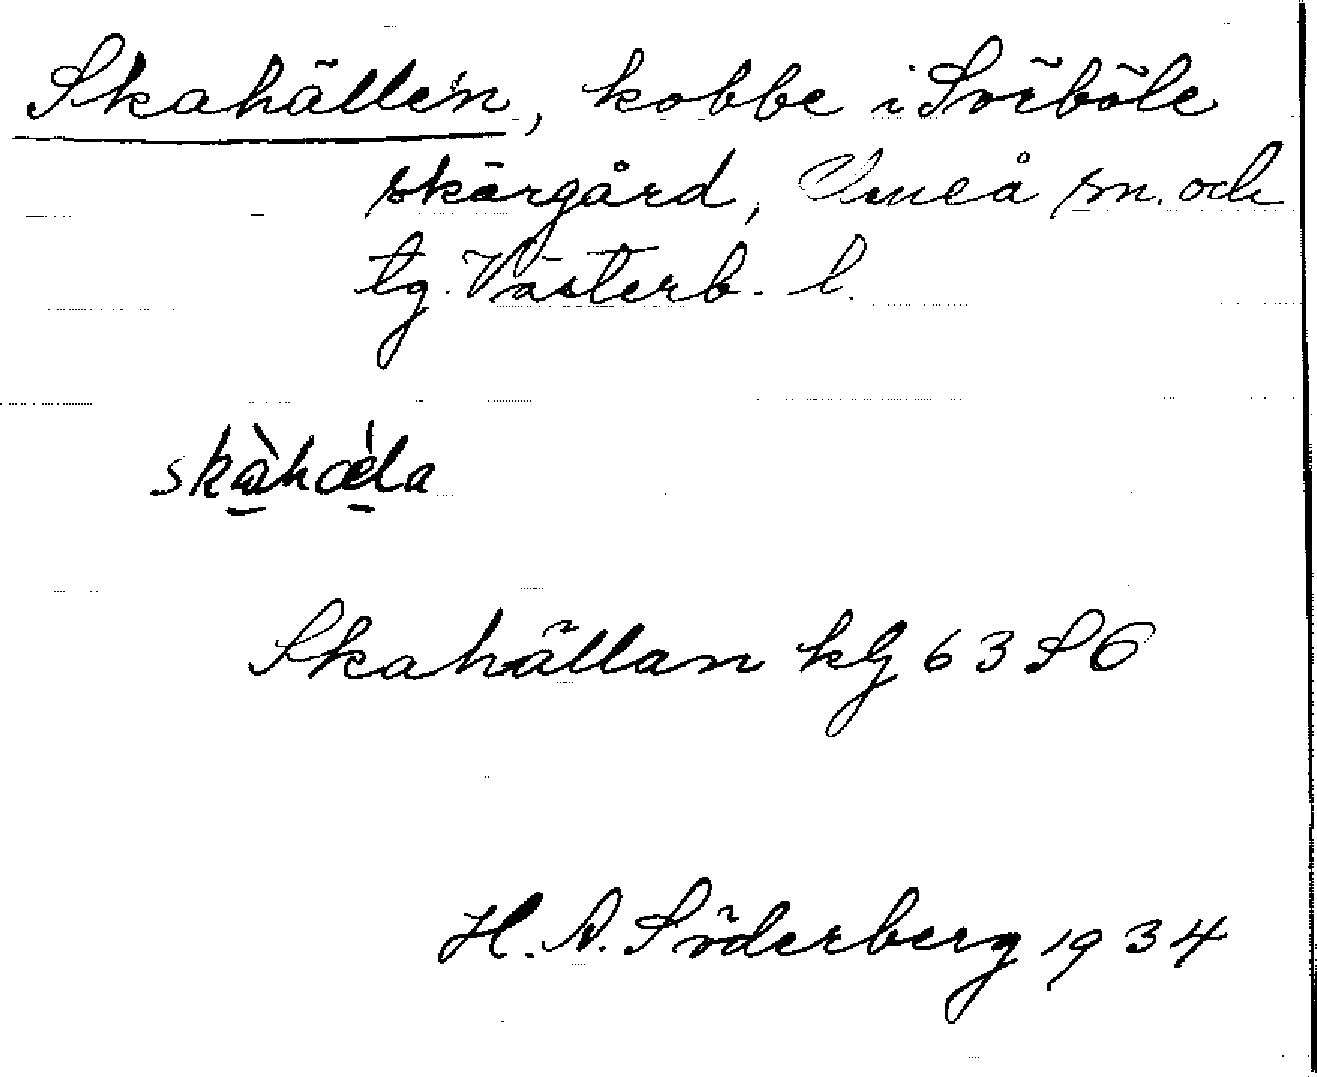 Skahällen, kobbe i Sörböle
skärgård, Umeå sn. och
tg. Västerb. l.
skàhæ̀la
Skahällan kG 63 SO
H. A. Söderberg 1934